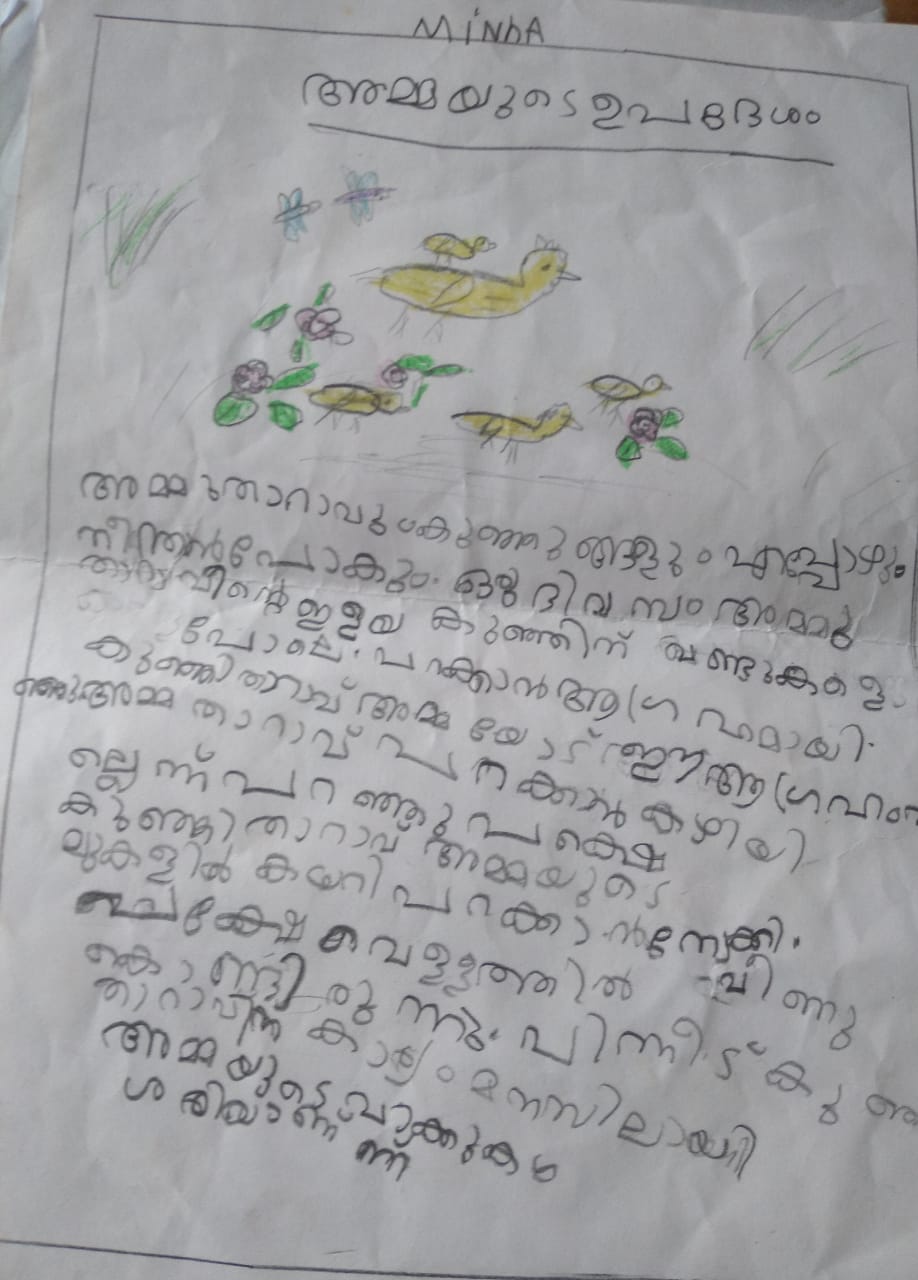 MiNhA
അമ്മയുടെ ഉപദേശം
അമ്മ താറാവും കുഞ്ഞു ങ്ങളും എപ്പോഴും
നീന്താൻ പോകും. ഒരു ദിവസം അമ്മ
താറാവിന്റെ ഇളയ കുഞ്ഞിന് വണ്ടുകളെ
പോലെ. പറക്കാൻ ആഗ്രഹമായി.
കുഞ്ഞിതാറാവ് അമ്മയോട് ഈ ആഗ്രഹം
അമ്മ താറാവ് പറക്കാൻ കഴിയി
ല്ലെന്ന് പറഞ്ഞു പക്ഷെ
കുഞ്ഞിതാറാവ് അമ്മയുടെ
മുകളിൽ കയറി പറക്കാൻ നോക്കി.
പക്ഷേ വെള്ളത്തിൽ വീണു
കൊണ്ടിരുന്നു. പിന്നീട് കുഞ്ഞ
താറാവിന് കാര്യം മനസിലായി
അമ്മയുടെ വാക്കുകൾ
ശരിയാണെ
ന്ന്